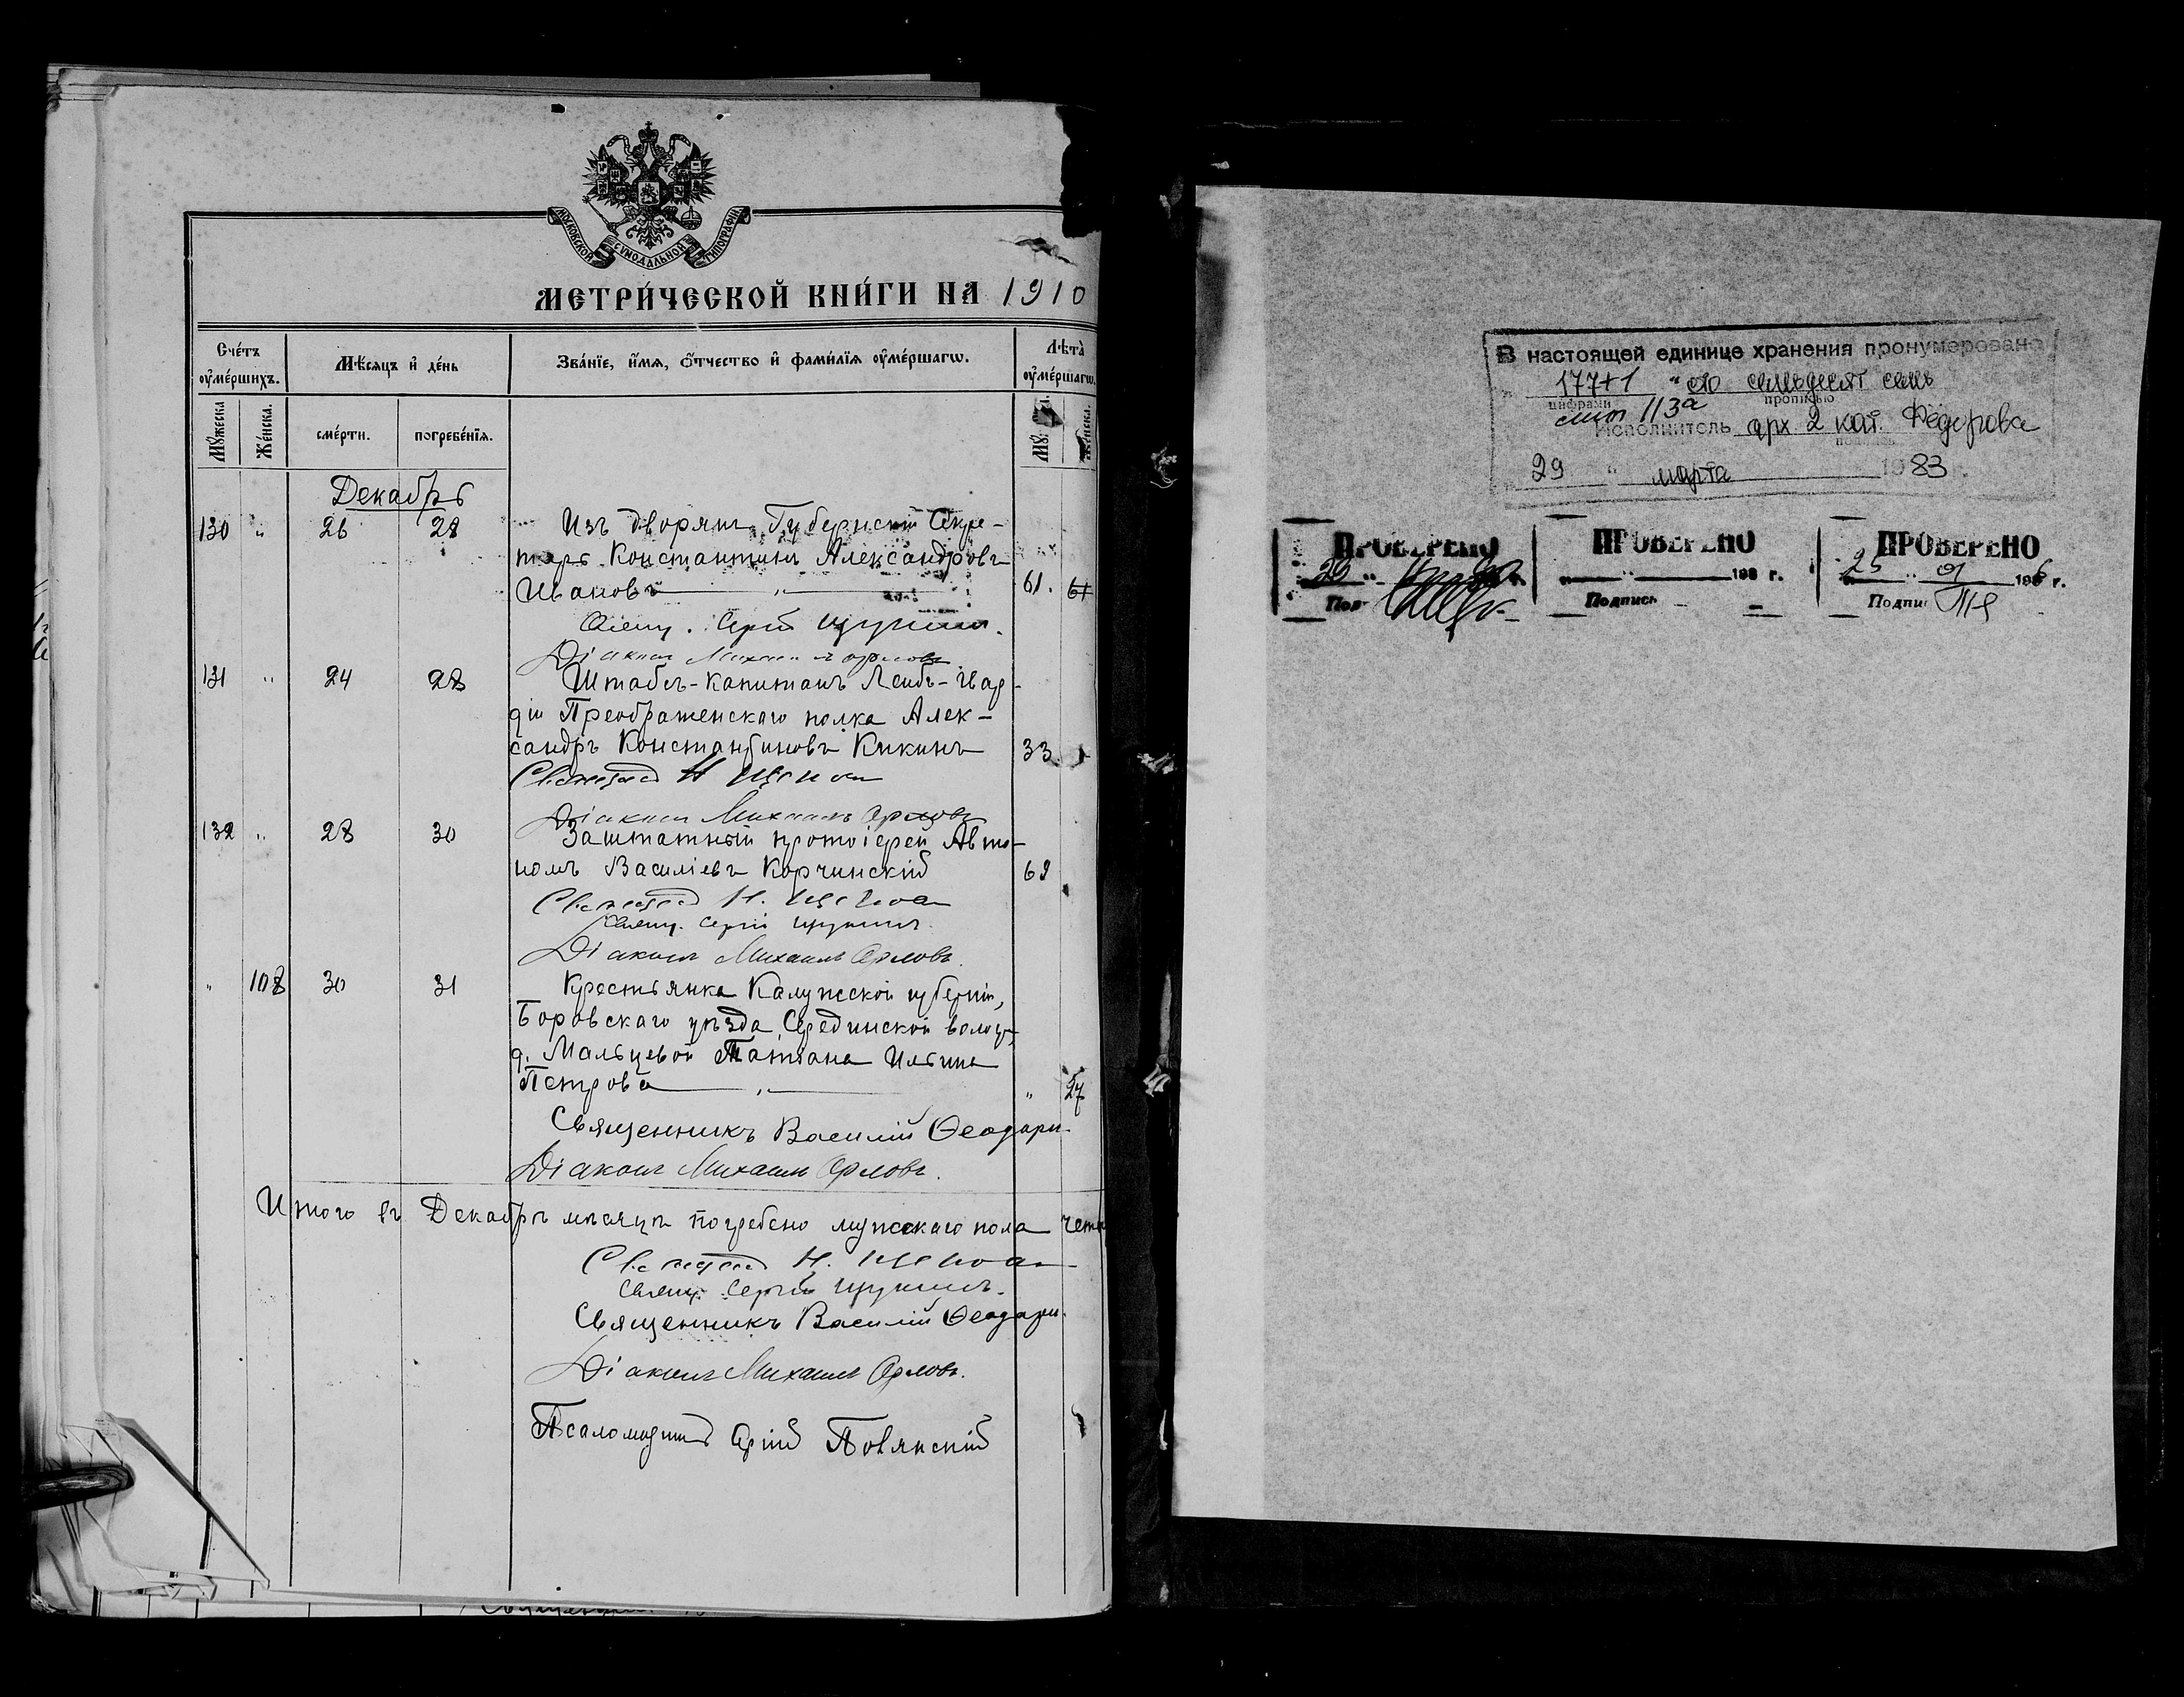 МОСКОВСКОЙ СУНОДАЛЬНОЙ ТИПОГРАФІИ
МЕТРИ́ЧЕСКОЙ КНИ́ГИ НА 1910
Сче́тъ ᲂумершихъ. Мѣсяцъ и де́нь Зва́нїе, и́мя, ѻ҆́тчество и фами́лїя ᲂуме́ршагѡ. Лѣта̀ ᲂуме́ршагѡ.
Мꙋжеска Же́нска. сме́рти. погребе́нїя. Мꙋ Же́нска.
Декабрь
130 " 26 28 Изъ дворянъ, Губернскій Секре-
тарь Константинъ Александровъ
Ивановъ " 61. 61
Свящ. Сергій Щукинъ.
Діаконъ Михаилъ Орловъ.
131 " 24 28 Штабсъ-капитанъ Лейбъ-Гвар-
діи Преображенскаго полка Алек-
сандръ Константиновъ Кикинъ 33
Діаконъ Михаилъ Орловъ
132 " 28 30 Заштатный протоіерей Авто-
номъ Василіевъ Корчинскій 69
Свящ. Сергій Щукинъ.
Діаконъ Михаилъ Орловъ.
" 108 30 31 Крестьянка Калужской губерніи,
Боровскаго уѣзда, Серединской волос.,
д. Мальцевой Татіана Ильина
Петрова " " 27
Священникъ Василій
Діаконъ Михаилъ Орловъ.
Итого въ Декабрѣ мѣсяцѣ погребено мужескаго пола четы
Свящ. Сергій Щукинъ.
Священникъ Василій
Діаконъ Михаилъ Орловъ.
Псаломщикъ
В настоящей единице хранения пронумеровано
177+1 "сто семьдесят семь
цифрами прописью
113а
Исполнитель арх. 2 кат. Фёдорова
подпись
29 " марта 1983
ПРОВЕРЕНО ПРОВЕРЕНО ПРОВЕРЕНО
" 198 г. 25 " 01 1986 г.
Подпись Подпись